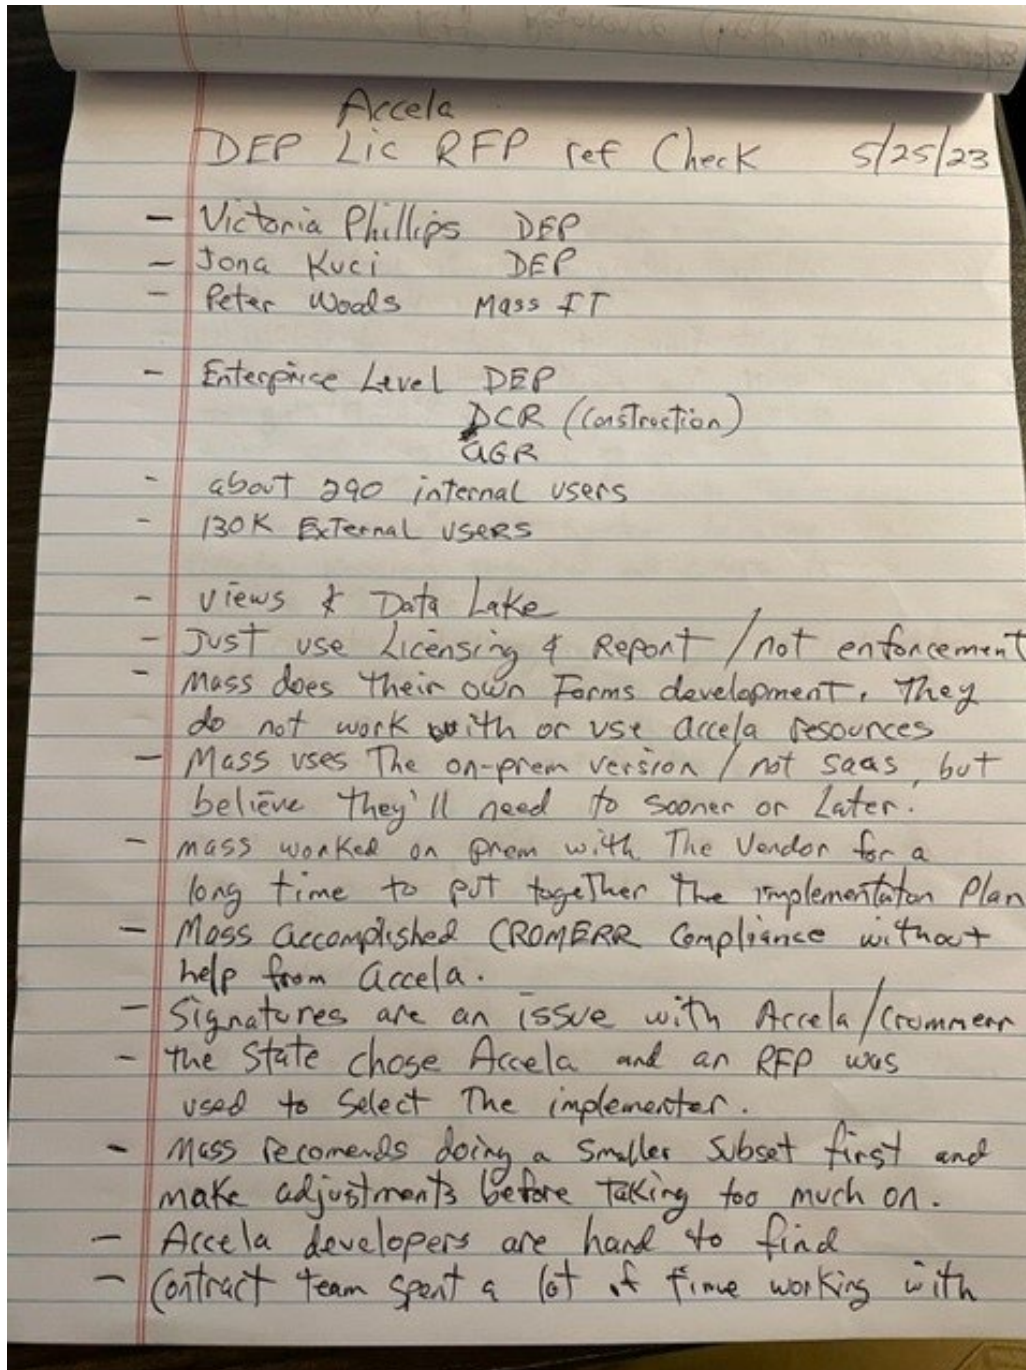 Accela
DEP Lic RFP ref Check 5/25/23
- Victoria Phillips DEP
- Jona Kuci DEP
- Peter Woods Mass IT
- Enterprice Level DEP
DCR (Construction)
AGR
- about 290 internal users
- 130K External users
- views & Data Lake
- Just use Licensing & Report / not enforcement
- Mass does their own Forms development. They
do not work with or use accela resources
- Mass uses The on-prem version / not saas, but
believe they'll need to sooner or Later.
- mass worked on prem with The Vendor for a
long time to put together the implementaton Plan
- Mass accomplished CROMERR Compliance without
help from accela.
- Signatures are an issue with Accela/Crommerr
- the State chose Accela and an RFP was
used to Select The implementer.
- Mass recomends doing a smaller Subset first and
make adjustments before Taking too much on.
- Accela developers are hard to find
- Contract team spent a lot of time working with